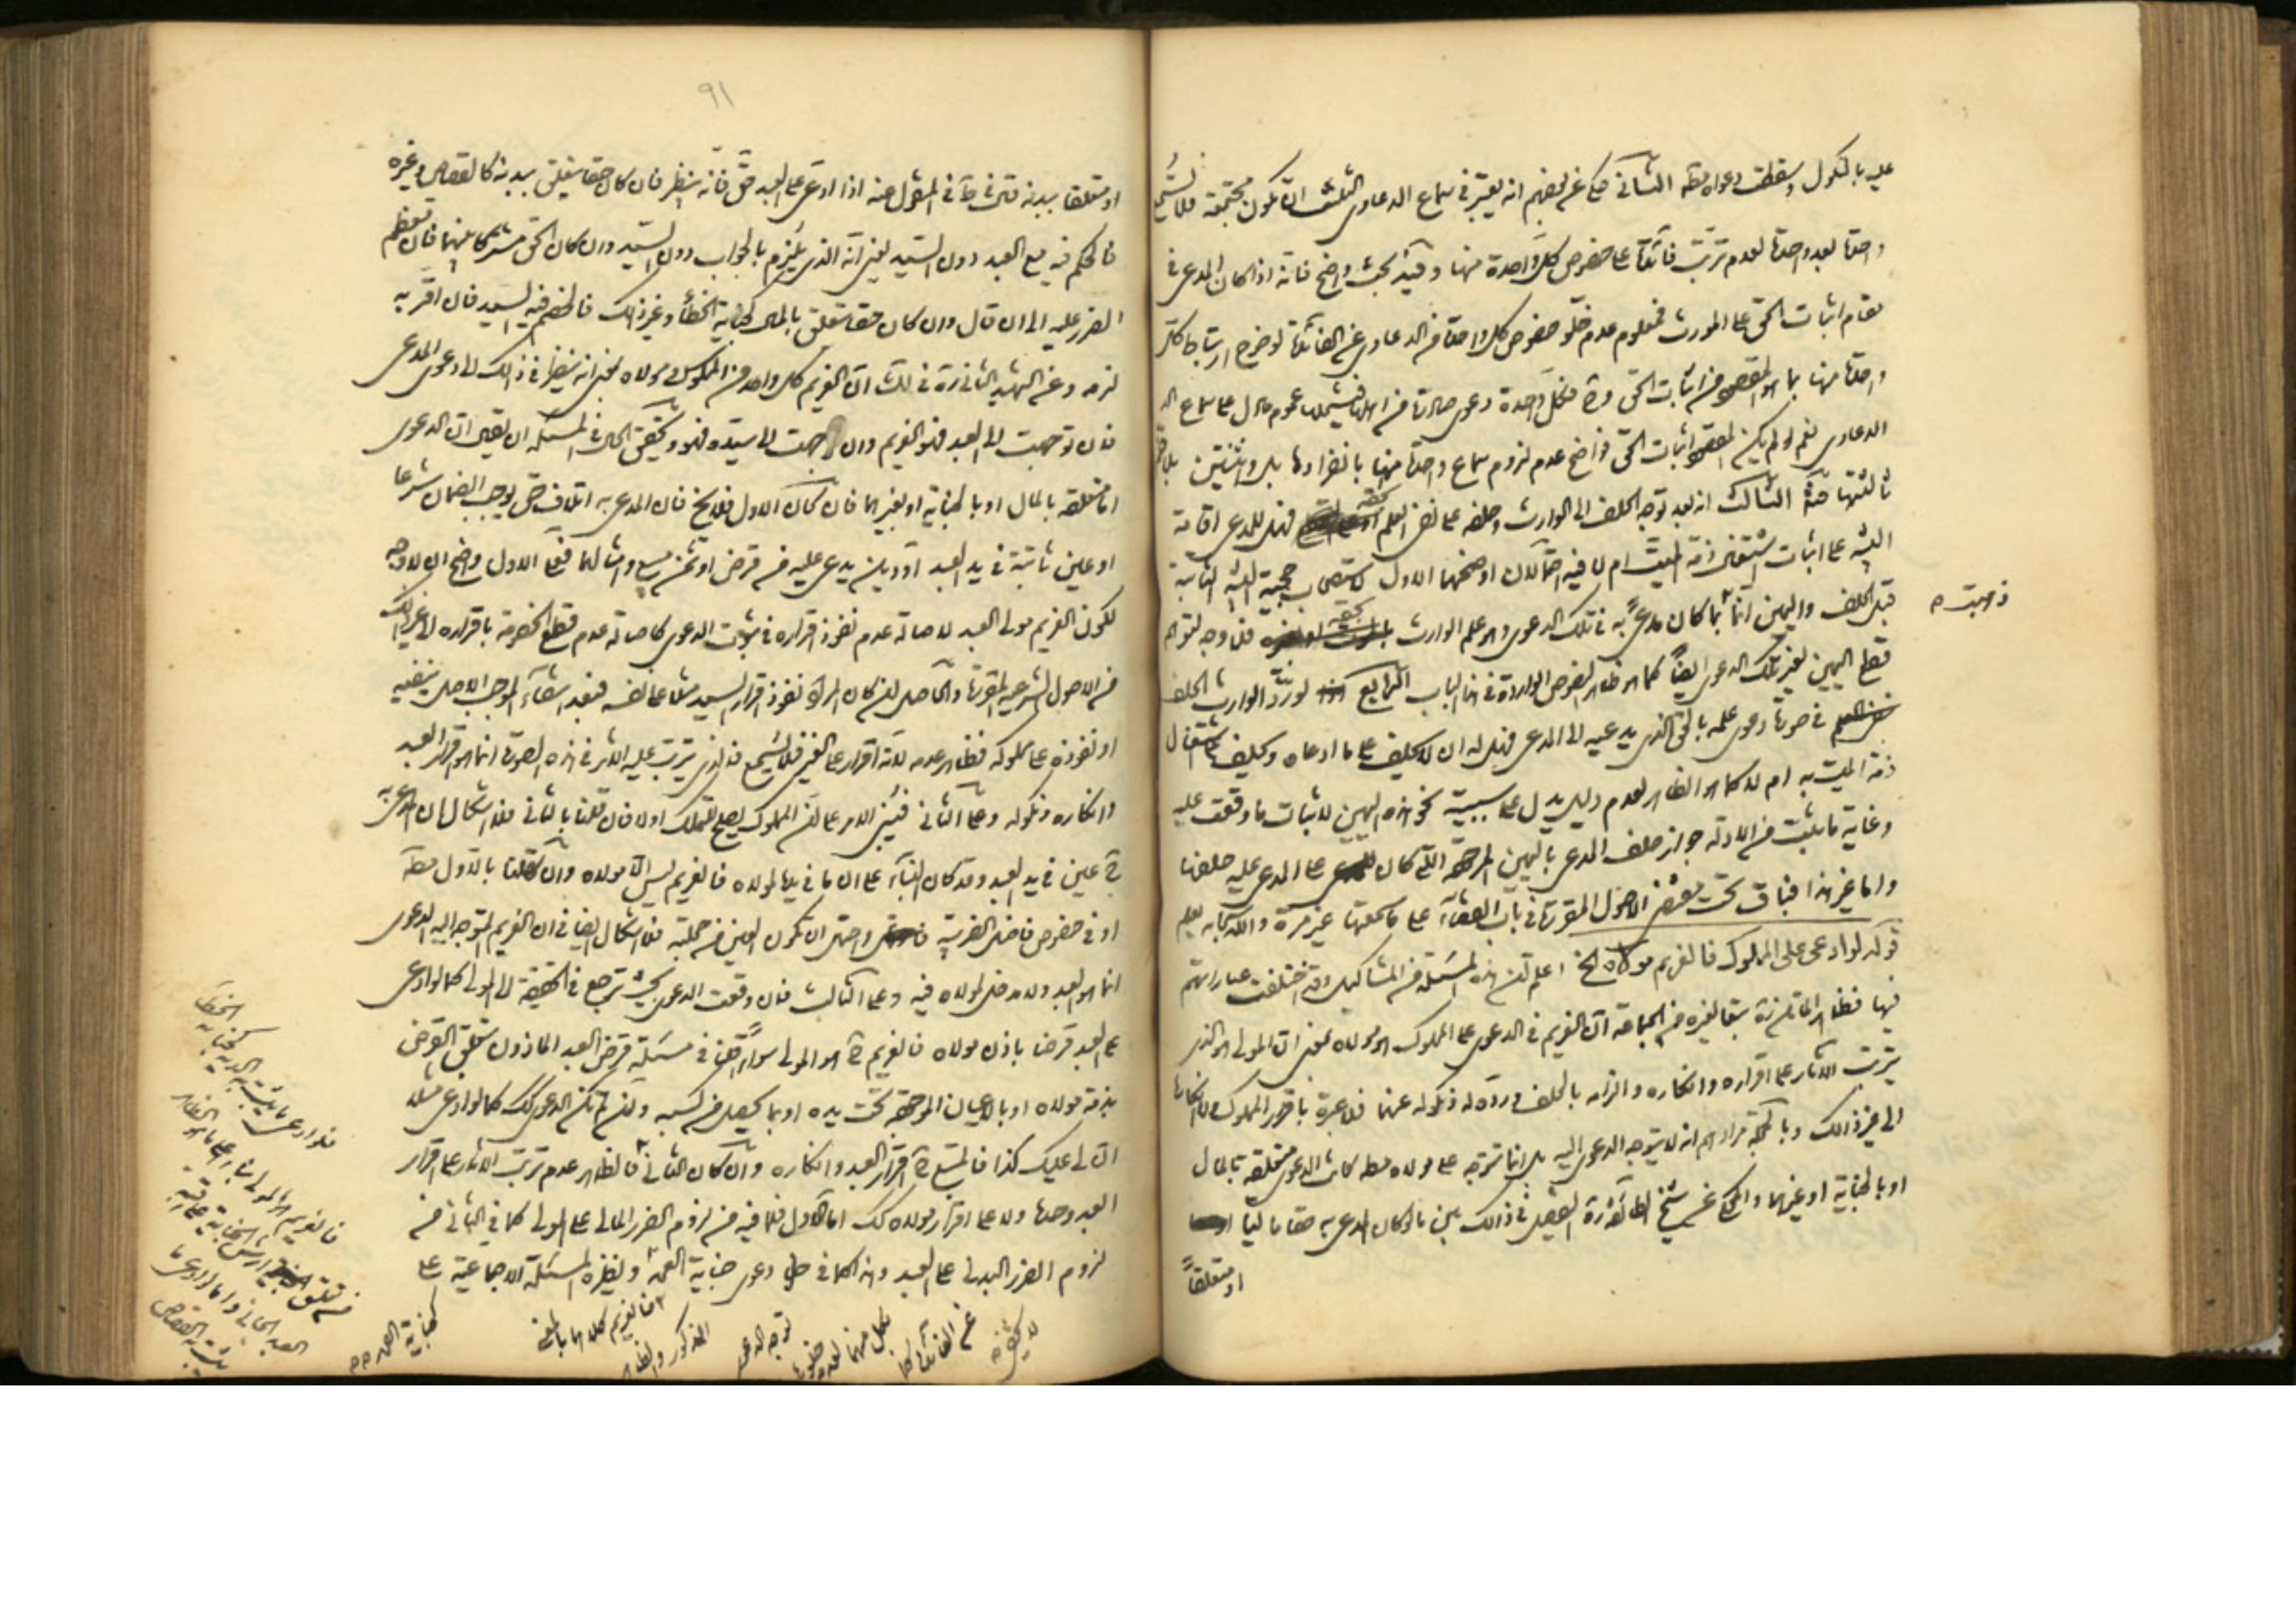 عليه بالنكول وسقطت دعواه الثانى حكى عن بعضهم انه يعتبر فى سماع الدعاوى الثلث ان تكون مجتمعة فلا تسمع
واحدة بعد واحدة لعدم ترتب فائدة على خصوص كل واحدة منها وفيه بحث واضح فانه اذا كان المدعى فى
مقام اثبات الحق على المورث فمعلوم عدم خلو خصوص كل واحدة من الدعاوى عن الفائدة لوضوح
واحدة منها بما هو المقصود من اثبات الحق فكل واحدة دعوى صادرة من اهلها فيشملها عموم ما دل على سماع
الدعاوى نعم لو لم يكن المقصود اثبات الحق فواضح عدم لزوم سماع واحدة منها بانفرادها بل واثنتين
ثالثتها الثالث انه بعد توجه الحلف الى الوارث وحلفه على نفى العلم فهل للمدعى اقامة
البينة على اثبات اشتغال ذمة الميت ام لا فيه احتمالان اوضحهما الاول حجية البينة الثابتة
قبل الحلف واليمين انما كان مدعى به فى تلك الدعوى وهو علم الوارث فلا وجه لتوهم
قطع اليمين لغير تلك الدعوى ايضا كما هو ظاهر النصوص الواردة فى هذا الباب الرابع لو رد الوارث الحلف
فى صورة دعوى علمه بالحق الذى يدعيه الى المدعى فهل له ان يحلف على ما ادعاه ويحلف على اشتغال
ذمة الميت به ام لا كما هو الظاهر لعدم دليل يدل على سببية نحو هذه اليمين لاثبات ما وقعت عليه
وغاية ما يثبت من الادلة جواز حلف المدعى باليمين المردودة التى كان على المدعى عليه حلفها
واما غير هذا فباق تحت بعض الاصول المقررة فى باب القضاء على ما سمعتها غير مرة والله سبحانه يعلم
قوله لو ادعى على المملوك فالغريم مولاه الخ اعلم ان هذه المسئلة من المشاكيل وقد اختلفت عباراتهم
فيها فظاهر الماتن ره تبعا لغيره من الجماعة ان الغريم فى الدعوى على المملوك هو مولاه بمعنى ان المولى هو الذى
يترتب الاثار على اقراره وانكاره والزامه بالحلف ورده له ونكوله عنهما فلا عبرة باقرار المملوك ولا انكاره
الى غير ذلك وبالجملة مرادهم انه لا يتوجه الدعوى اليه بل انما تتوجه على مولاه كانت الدعوى متعلقة بالمال
او بالجناية او غيرهما والمحكى عن شيخ الطائفة ره التفصيل فى ذلك بين ما لو كان المدعى به حقا ماليا
او متعلقا
ذهبت
٩١
او متعلقا ببدنه فى المنقول عنه اذا ادعى على العبد حق فانه ينظر فان كان حقا يتعلق ببدنه كالقصاص وغيره
فالحكم فيه مع العبد دون السيد يعنى انه الذى يلزم بالجواب دون السيد وان كان الحق مشتركا بينهما فان
الضرر عليه الى ان قال وان كان حقا يتعلق بالمال كجناية الخطأ وغير ذلك فالخصم فيه السيد فان اقر به
لزمه وعن الشهيد الثانى ره فى لك ان الغريم كل واحد من المملوك ومولاه بمعنى انه ينظر فى ذلك الى دعوى المدعى
فان توجهت الى العبد فهو الغريم وان توجهت الى سيده فهو وتحقيق الحال فى المسئلة ان يقال ان الدعوى
اما متعلقة بالمال او بالجناية او بغيرهما فان كان الاول فلا يخ فان المدعى به اتلاف حتى يوجب الضمان شرعا
او عين ثابتة فى يد العبد او دين يدعى عليه من قرض او ثمن مبيع وامثالهما فعلى الاول واضح ان لا وجه
لكون الغريم مولى العبد لاصالة عدم نفوذ اقراره فى ثبوت الدعوى كاصالة عدم قطع الخصومة باقراره الى غير ذلك
من الاصول الشرعية المقررة والحاصل ان كان المراد نفوذ اقرار السيد مثلا على نفسه فبعد انتفاء الموجب الاصل ينفيه
او نفوذه على مملوكه فظاهر عدمه لانه اقرار على الغير فلا يسمع فالذى يترتب عليه الاثر فى هذه الصورة انما هو اقرار العبد
وانكاره ونكوله وعلى الثانى فيبنى الامر على ان المملوك يصلح للتملك اولا فان قلنا بالثانى فلا اشكال لان المدعى به
ح عين فى يد العبد وقد كان البناء على ان ما فى يده لمولاه فالغريم ليس الا مولاه وان قلنا بالاول
او فى خصوص فاضل الضريبة واحتمل ان تكون العين من جملته فلا اشكال ايضا فى ان الغريم المتوجه اليه الدعوى
انما هو العبد ولا مدخل لمولاه فيه وعلى الثالث فان وقعت الدعوى بحيث ترجع فى الحقيقة الى المولى كما لو ادعى
على العبد قرضا باذن مولاه فالغريم ح هو المولى سواء قلنا فى مسئلة قرض العبد الماذون بتعلق القرض
بذمة مولاه او بالاعيان الموجودة تحت يده او بما يحصل من كسبه وان لم تكن الدعوى كك كما لو ادعى مثلا
ان لى عليك كذا فالمتبع ح اقرار العبد وانكاره وان كان الثانى فالظاهر عدم ترتب الاثار على اقرار
العبد وحده ولا على اقرار مولاه كك اما الاول فلما فيه من لزوم الضرر المالى على المولى كما فى الثانى من
لزوم الضرر البدنى على العبد وهذا كما فى دعوى جناية العمد ونظيره المسئلة الاجماعية على
فالغريم كلاهما بالمعنى
المذكور والظاهر
توجه الدعوى
لكل منهما
عن الفائدة
كجناية العمد
الخطاء
فلو ادعى ما يثبت به الدية كجناية
فالغريم هو المولى بناء على ما هو الظاهر
من تعلق ارش الجناية على رقبة
العبد الجانى واما لو ادعى ما
يثبت به القصاص